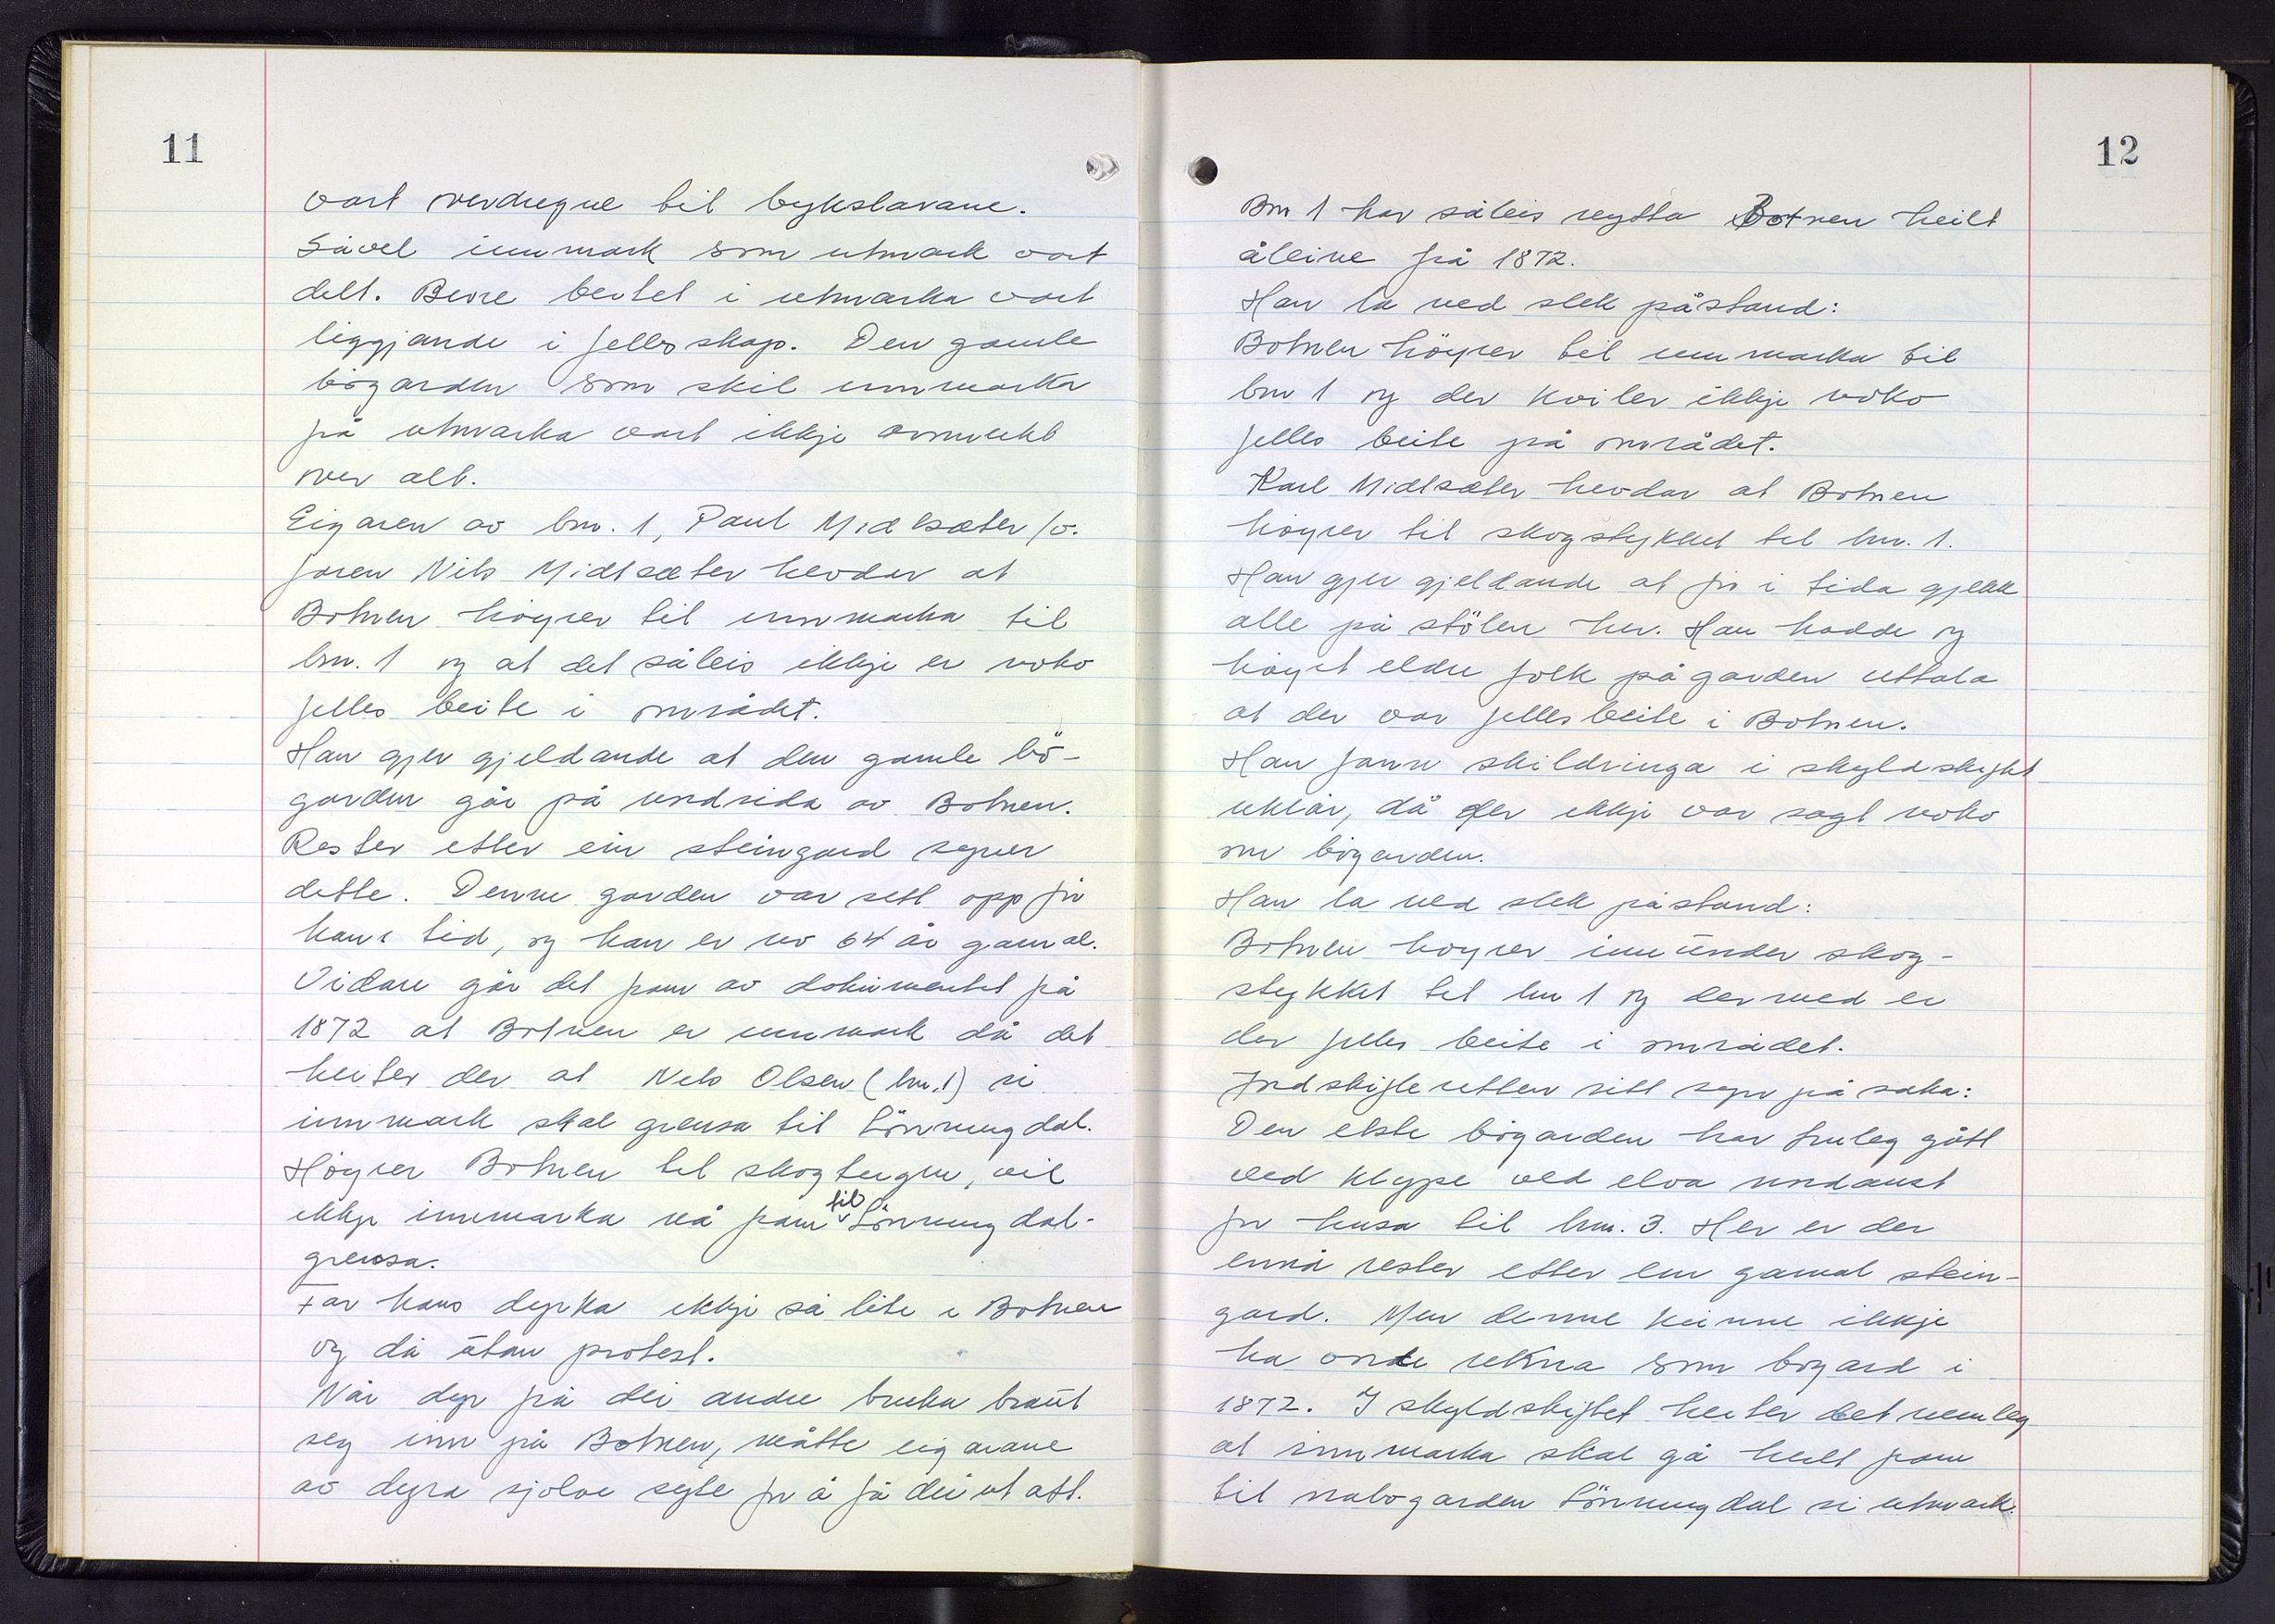 11
vart overdregne til bykslarane.
Såvel innmark som utmark vart
delt. Berre beitet i utmarka vart
liggjande i fellesskap. Den gamle
bögarden som skil innmarka
frå utmarka vart ikkje avmerkt
over alt.
Eigaren av bnr. 1, Paul Midtsæter /v.
faren Nils Midtsæter hevdar at
Botnen höyrer til innmarka til
bnr. 1 og at det såleis ikkje er noko
felles beite i området.
Han gjer gjeldande at den gamle bö-
garden går på nedsida av Botnen.
Rester etter ein steingard syner
dette. Denne garden var sett opp för
hans tid, og han er no 64 år gamal.
Vidare går det fram av dokumentet frå
1872 at Botnen er innmark då det
heiter der at Nils Olsen (bnr. 1) si
innmark skal grensa til Lönningdal.
Höyrer Botnen til skogteigen, vil
ikkje innmarka nå fram til Lönningdal-
grensa.
Far hans dyrka ikkje så lite i Botnen
og då utan protest.
Når dyr frå dei andre bruka braut
seg inn på Botnen, måtte eigarane
av dyra sjolve syte for å få dei ut att.
12
Bnr 1 har såleis nytta Botnen heilt
åleine frå 1872.
Han la ned slik påstand:
Botnen höyrer til innmarka til
bnr 1 og der kviler ikkje noko
felles beite på området.
Karl Midtsæter hevdar at Botnen
höyrer til skogstykket til bnr. 1.
Han gjer gjeldande at för i tida gjekk
alle på stölen her. Han hadde og
höyrt eldre folk på garden uttala
at der var fellesbeite i Botnen.
Han fann skildringa i skyldskiftet
uklår, då der ikkje var sagt noko
om bögarden.
Han la ned slik påstand:
Botnen höyrer inn under skog-
stykket til bnr 1 og dermed er
der felles beite i området.
Jordskifteretten sitt syn på saka:
Den elste bögarden har truleg gått
ved Klype ved elva nordaust
for husa til bnr. 3. Her er der
ennå rester etter ein gamal stein-
gard. Men denne kunne ikkje
ha vorte rekna som bögard i
1872. I skyldskiftet heiter det nemleg
at innmarka skal gå heilt fram
til nabogarden Lönningdal si utmark.